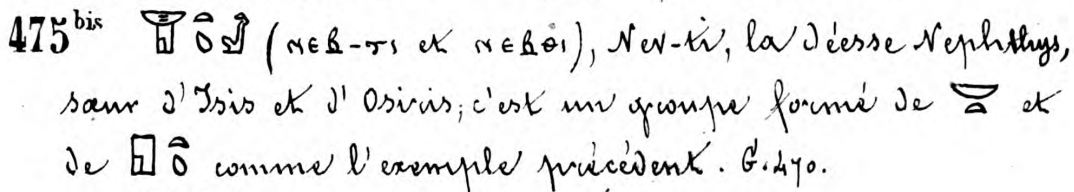 475 bis 𓉠𓏏𓆇𓁐 (ⲛⲉⲃ-ⲧⲓ et ⲛⲉⲃⲑⲓ), Nev-ti, la déesse Nephthys,
sœur d'Isis et d'Osiris; c'est un groupe formé de 𓎟 et
de 𓉗 comme l'exemple précédent. G. 470.